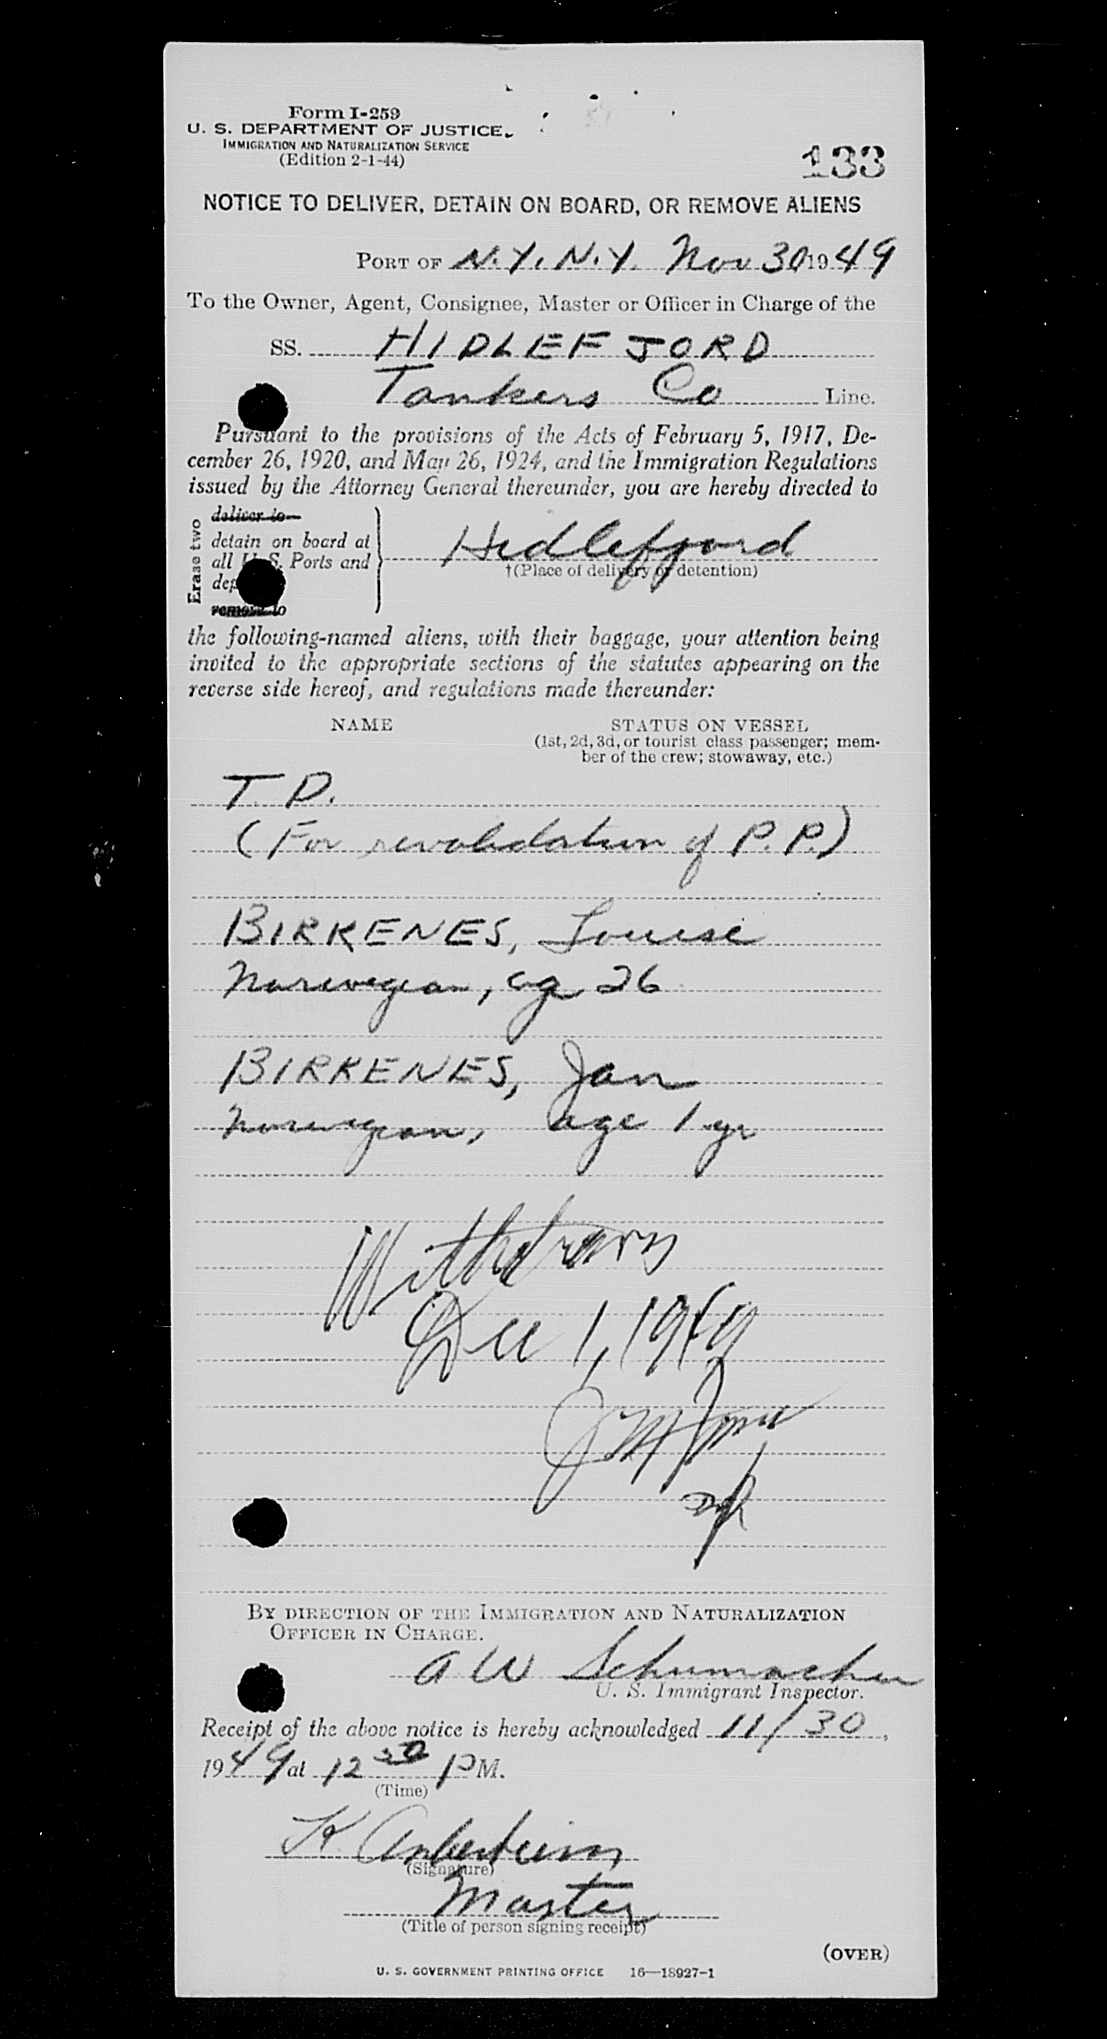 Form I-259
U. S. DEPARTMENT OF JUSTICE
IMMIGRATION AND NATURALIZATION SERVICE
(Edition 2-1-44)
133
NOTICE TO DELIVER, DETAIN ON BOARD, OR REMOVE ALIENS
PORT OF N.Y., N.Y. Nov 30 1949
To the Owner, Agent, Consignee, Master or Officer in Charge of the
SS. HIDLEFJORD
Tankers Co Line.
Pursuant to the provisions of the Acts of February 5, 1917, De-
cember 26, 1920, and May 26, 1924, and the Immigration Regulations
issued by the Attorney General thereunder, you are hereby directed to
Erase two
deliver to
detain on board at
all U. S. Ports and
remove to
Hidlefjord
†(Place of delivery or detention)
the following-named aliens, with their baggage, your attention being
invited to the appropriate sections of the statutes appearing on the
reverse side hereof, and regulations made thereunder:
NAME STATUS ON VESSEL
(1st, 2d, 3d, or tourist class passenger; mem-
ber of the crew; stowaway, etc.)
T. D.
(For revalidation of P.P.)
BIRKENES, Louise
Norwegian, ag 26
BIRKENES, Jan
Norwegian, age 1 yr
Withdrawn
Dec 1, 1949
BY DIRECTION OF THE IMMIGRATION AND NATURALIZATION
OFFICER IN CHARGE.
A W Schumacher
U. S. Immigrant Inspector.
Receipt of the above notice is hereby acknowledged 11/30,
1949 at 12 30 PM.
(Time)
K.
(Signature)
Master
(Title of person signing receipt)
(OVER)
U. S. GOVERNMENT PRINTING OFFICE 16—18927-1